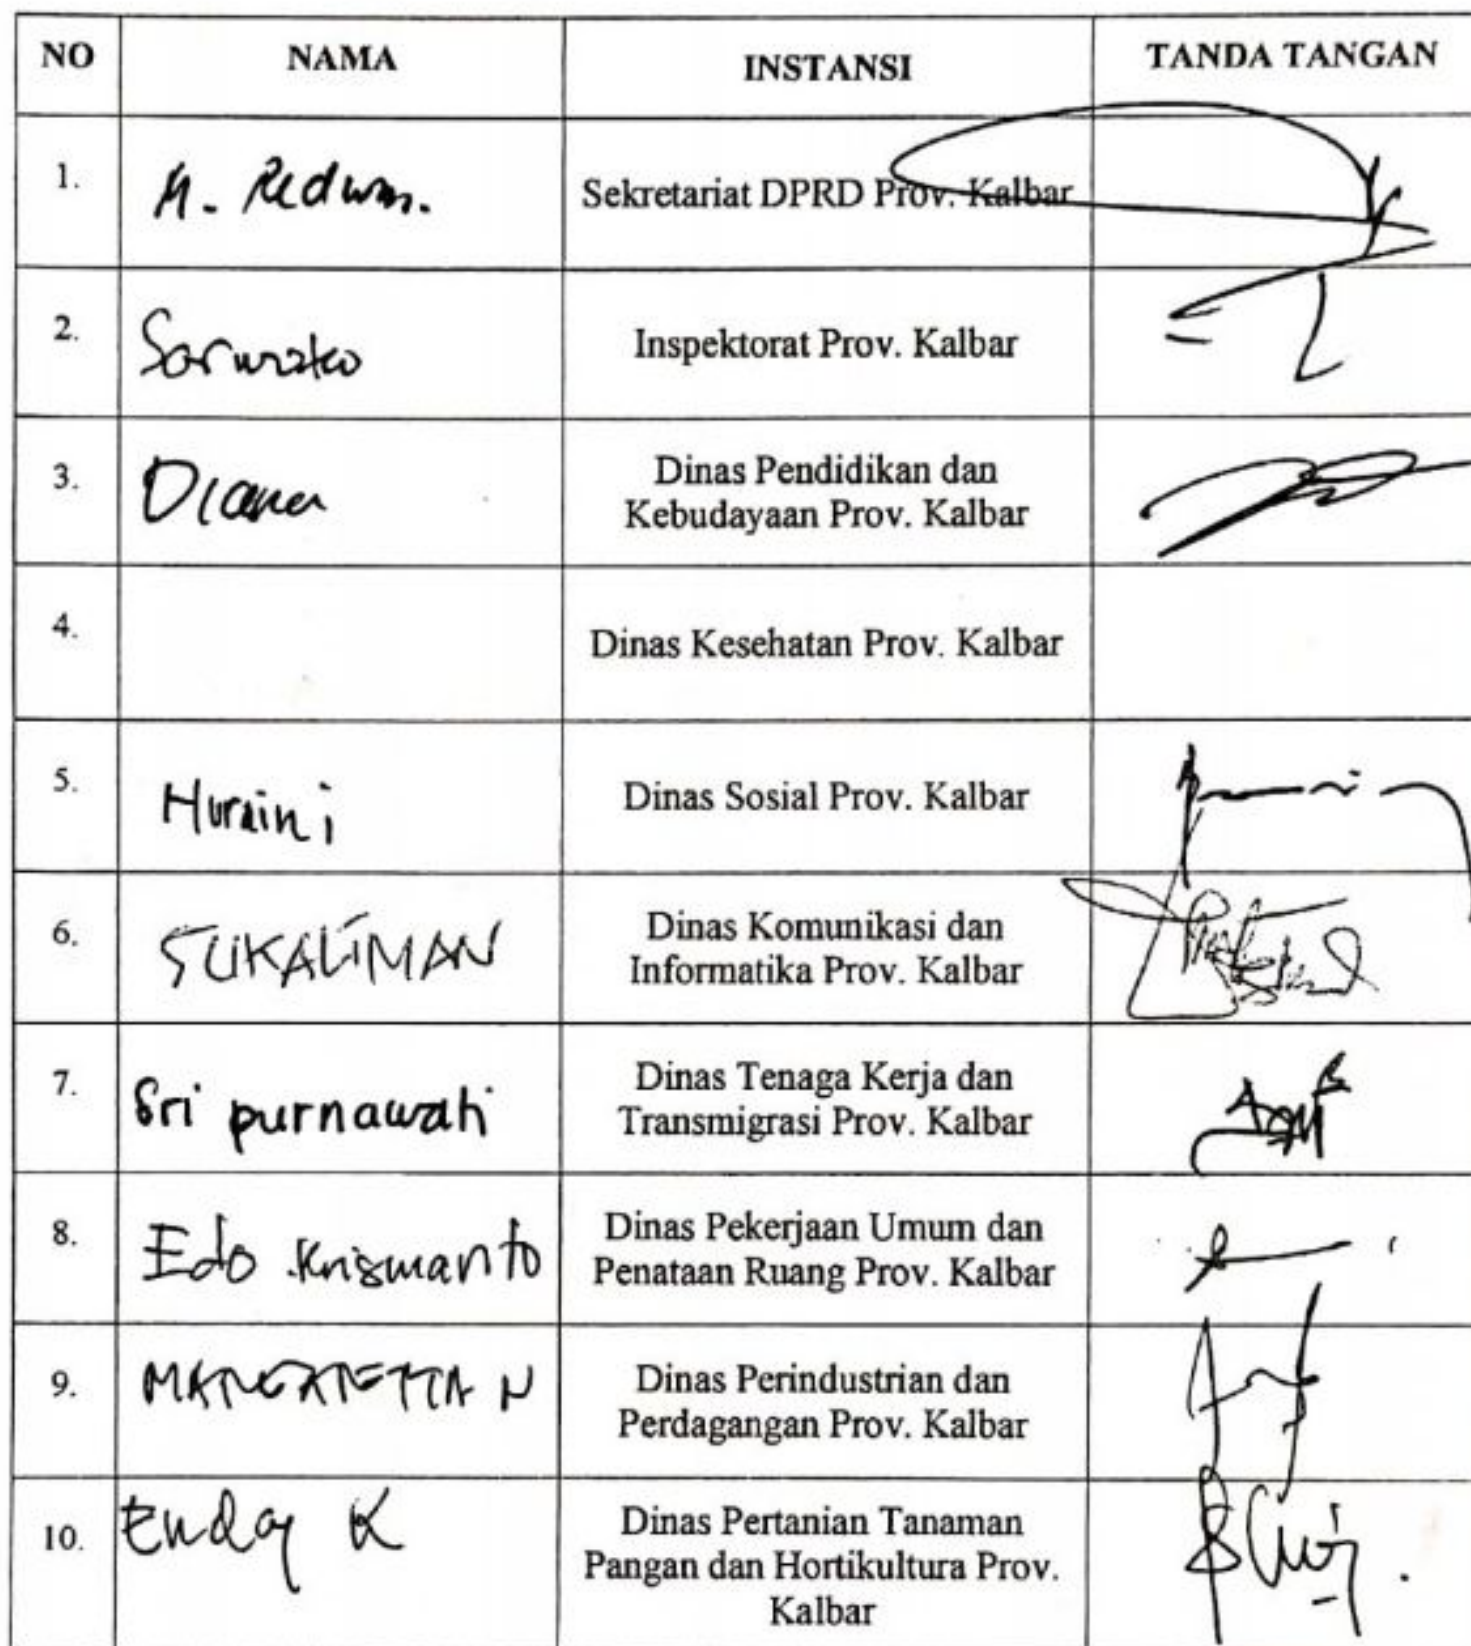 NO NAMA INSTANSI TANDA TANGAN
1. M. Redwan. Sekretariat DPRD Prov. Kalbar
2. Sarwoko Inspektorat Prov. Kalbar
3. Diana Dinas Pendidikan dan
Kebudayaan Prov. Kalbar
4. Dinas Kesehatan Prov. Kalbar
5. Huraini Dinas Sosial Prov. Kalbar
6. SUKALIMAN Dinas Komunikasi dan
Informatika Prov. Kalbar
7. Sri purnawati Dinas Tenaga Kerja dan
Transmigrasi Prov. Kalbar
8. Edo Krismanto Dinas Pekerjaan Umum dan
Penataan Ruang Prov. Kalbar
9. MARGARETTA N Dinas Perindustrian dan
Perdagangan Prov. Kalbar
10. Enday K Dinas Pertanian Tanaman
Pangan dan Hortikultura Prov.
Kalbar